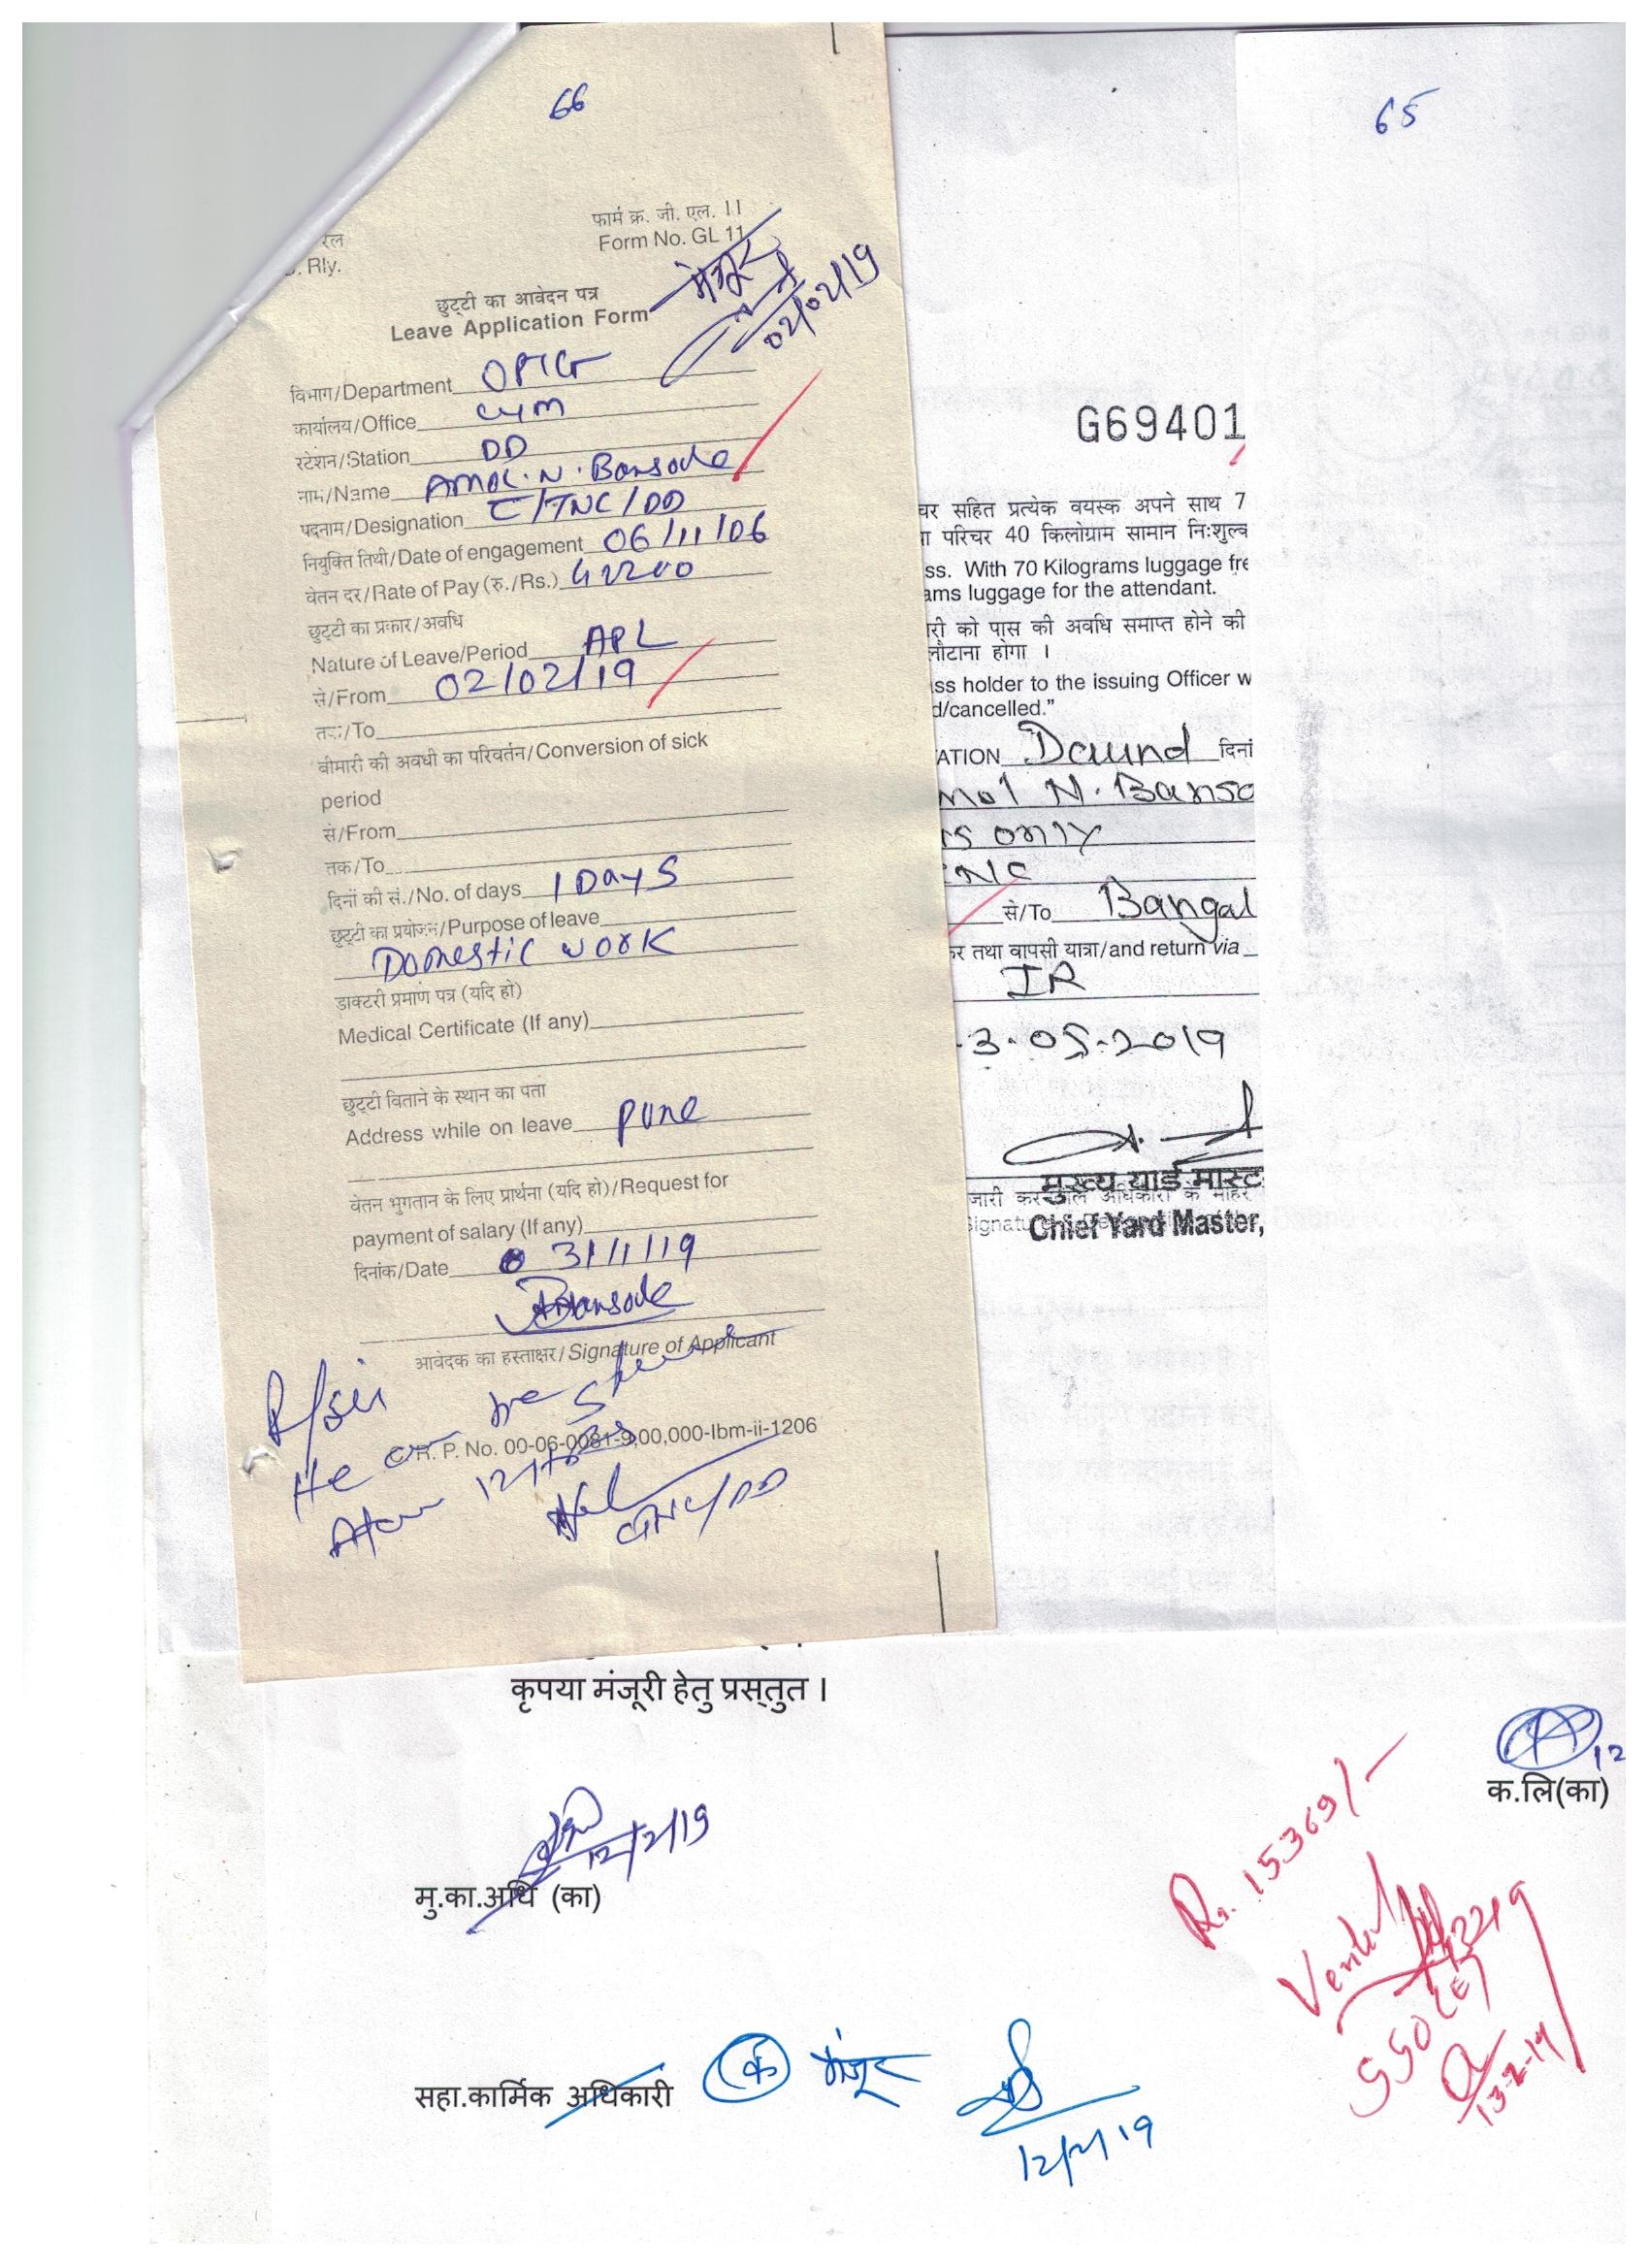 66
65
रेल
Rly.
फार्म क्र. जी. एल. 11
Form No. GL 11
मंजूर
02/02/19
छुट्टी का आवेदन पत्र
Leave Application Form
विभाग/Department OPTG
कार्यालय/Office CYM
स्टेशन/Station DD
नाम/Name AMOL.N.Bansode
पदनाम/Designation /TNC/DD
नियुक्ति तिथी/Date of engagement 06/11/06
वेतन दर/Rate of Pay (रु./Rs.)
छुट्टी का प्रकार/अवधि
Nature of Leave/Period APL
से/From 02/02/19
तक/To
बीमारी की अवधी का परिवर्तन/Conversion of sick
period
से/From
तक/To
दिनों की सं./No. of days 1 Days
छुट्टी का प्रयोजन/Purpose of leave
Domestic work
डाक्टरी प्रमाण पत्र (यदि हो)
Medical Certificate (If any)
छुट्टी विताने के स्थान का पता
Address while on leave pune
वेतन भुगतान के लिए प्रार्थना (यदि हो)/Request for
payment of salary (If any)
दिनांक/Date 31/1/19
Bansode
आवेदक का हस्ताक्षर/Signature of Applicant
R/Sir
He can be
R. P. No. 00-06-0081-9,00,000-Ibm-ii-1206
/DD
G69401
चर सहित प्रत्येक वयस्क अपने साथ 7
ा परिचर 40 किलोग्राम सामान निःशुल्क
ss. With 70 Kilograms luggage fre
ams luggage for the attendant.
री को पास की अवधि समाप्त होने की
लौटाना होगा ।
ss holder to the issuing Officer w
d/cancelled.”
ATION Daund दिनां
mol N. Banso
s only
TNC
से/To Bangal
कर तथा वापसी यात्रा/and return via
IR
3.05.2019
मुख्य यार्ड मास्ट
जारी करने वाले अधिकारी के मोहर
Chief Yard Master,
कृपया मंजूरी हेतु प्रस्तुत ।
12
क.लि(का)
12/2/19
मु.का.अधि (का)
Rs. 15369/-
SSO
13-2-19
सहा.कार्मिक अधिकारी
क मंजूर
12/2/19